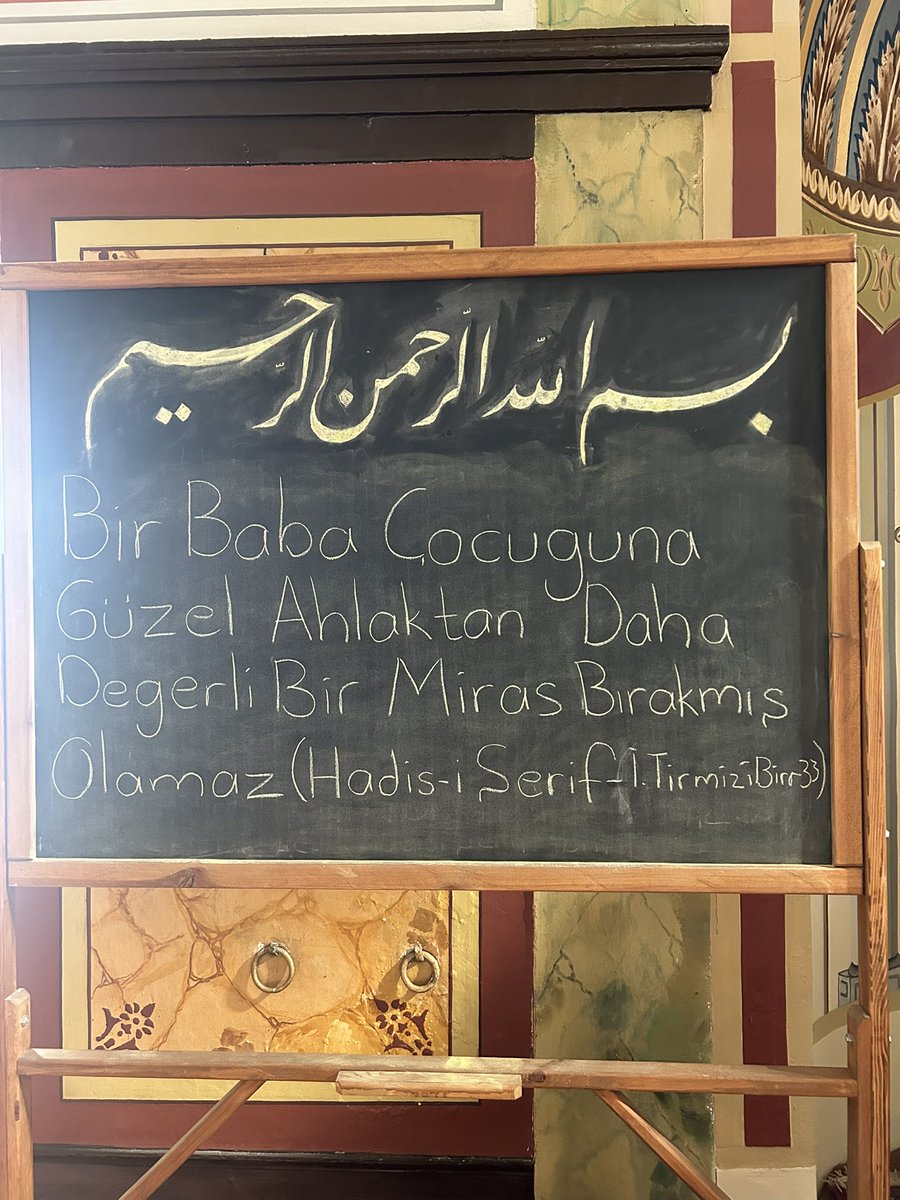 بسم الله الرحمن الرحيم
Bir Baba Çocuguna
Güzel Ahlaktan Daha
Degerli Bir Miras Bırakmış
Olamaz (Hadis-i Şerif-İ.Tirmizî Birr 33)